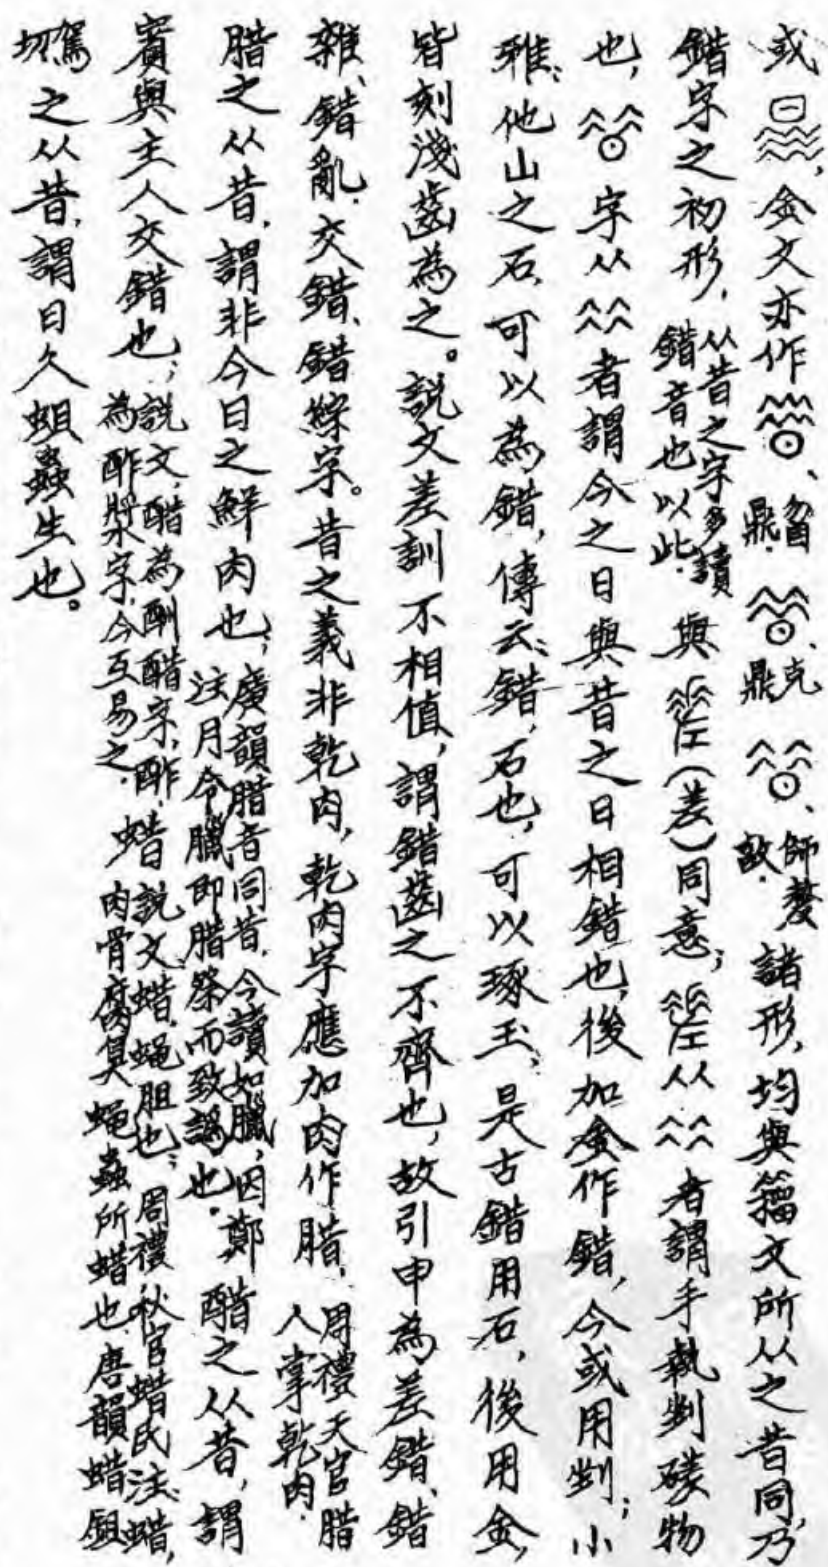 或，金文亦作、智鼎. 、克鼎 、師嫠敦. 諸形，均與籀文所从之昔同，乃
錯字之初形，从昔之字多讀錯音也以此. 與（差）同意；从者謂手執剉磋物
也，字从者謂今之日與昔之日相錯也，後加金作錯，今或用剉；小
雅：他山之石，可以為錯，傳云：錯，石也，可以琢玉，是古錯用石，後用金，
皆刻淺齒為之。說文差訓不相值，謂錯齒之不齊也，故引申為差錯、錯
雜、錯亂、交錯、錯綜字。昔之義非乾肉，乾肉字應加肉作腊，周禮天官腊人掌乾肉.
腊之从昔，謂非今日之鮮肉也；廣韻腊音同昔，今讀如臘，因鄭注月令臘即腊祭而致譌也. 醋之从昔，謂
賓與主人交錯也；說文，醋為酬醋字，酢，為酢漿字，今互易之. 蜡說文蜡，蝇胆也；周禮秋官蜡氏注：蜡，肉骨腐臭蝇蟲所蜡也，唐韻蜡，鉏
駕切之从昔，謂日久蛆蟲生也。